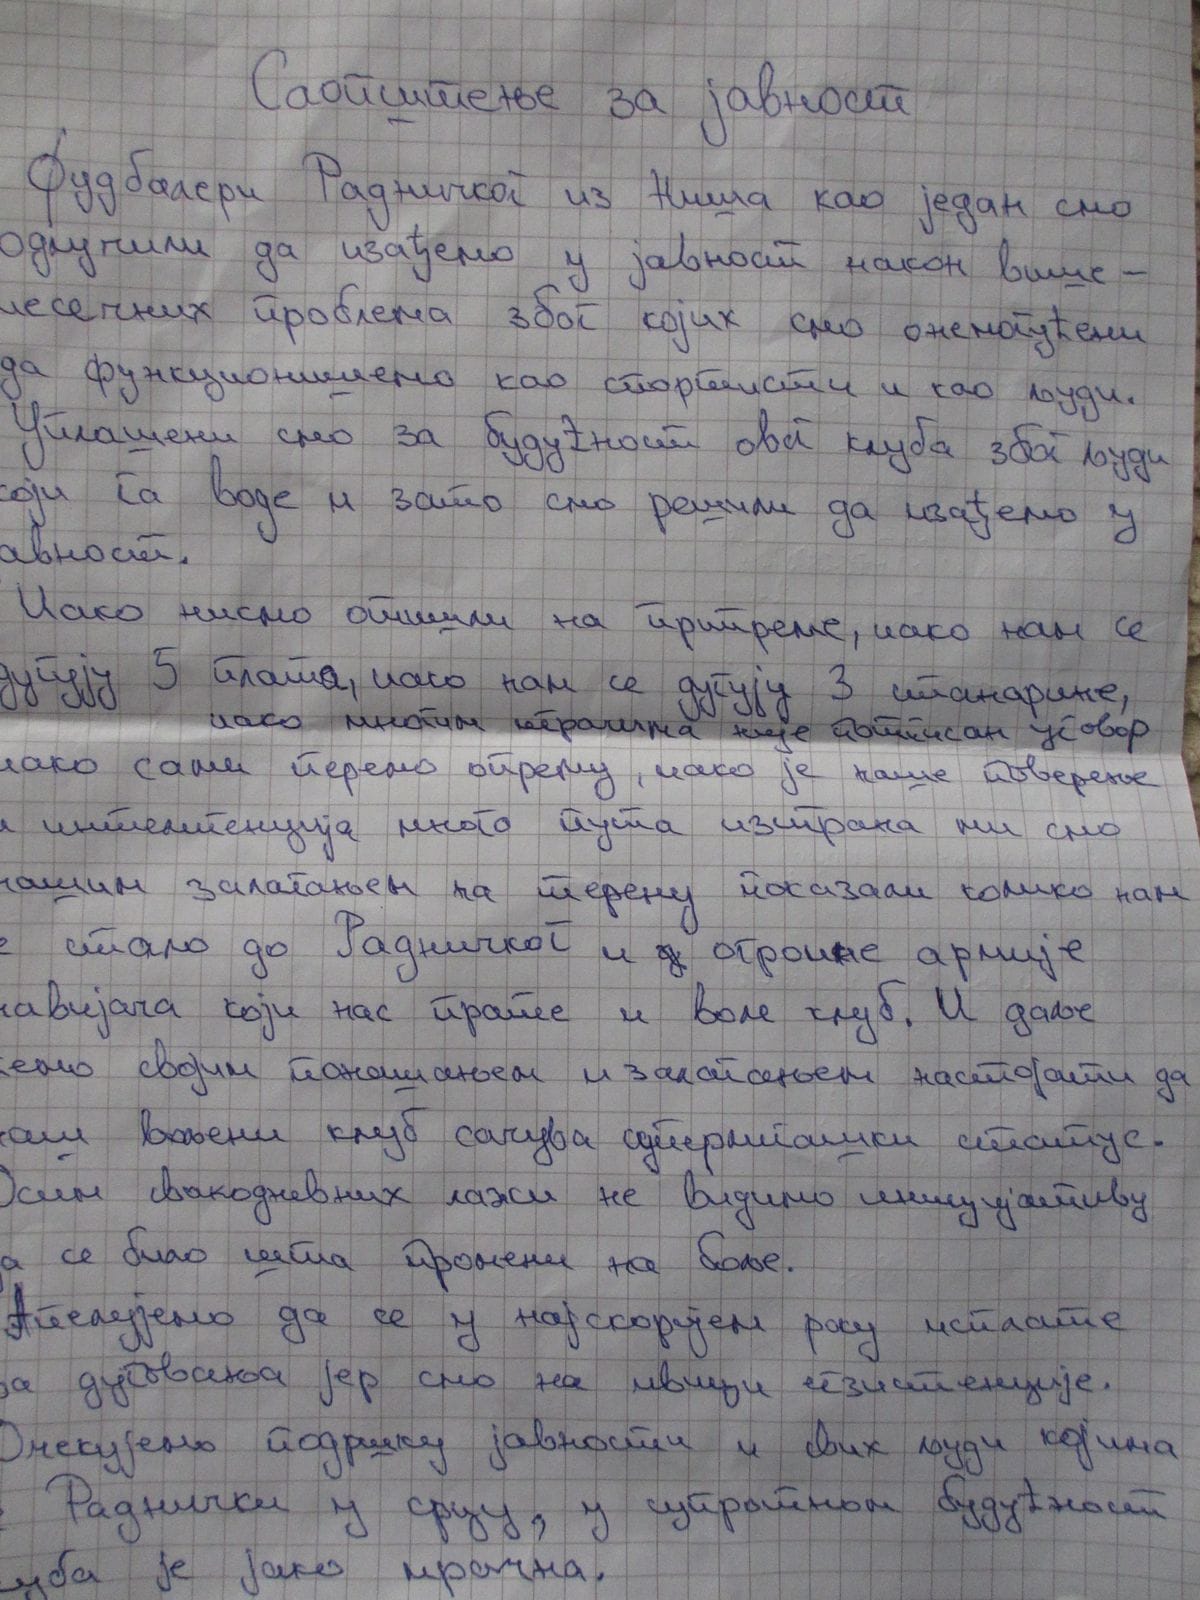 Саопштење за јавност
Фудбалери Радничког из Ниша као један смо
одлучили да изађемо у јавност након више-
месечних проблема због којих смо онемогућени
да функционишемо као спортисти и као људи.
Уплашени смо за будућност овог клуба због људи
који га воде и зато смо решили да изађемо у
авност.
Иако нисмо отишли на припреме, иако нам се
дугују 5 плата, иако нам се дугују 3 станарине,
иако многим играчима није потписан уговор
иако сами перемо опрему, иако је наше поверење
и интелигенција много пута изиграна ми смо
нашим залагањем на терену показали колико нам
е стало до Радничког и огромне армије
навијача који нас прате и воле клуб. И даље
ћемо својим понашањем и залагањем настојати да
наш вољени клуб сачува суперлигашки статус.
Осим свакодневних лажи не видимо иницијативу
да се било шта промени на боље.
Апелујемо да се у најскоријем року исплате
ва дуговања јер смо на ивици егзистенције.
Очекујемо подршку јавности и свих људи којима
е Раднички у срцу, у супротном будућност
луба је јако мрачна.